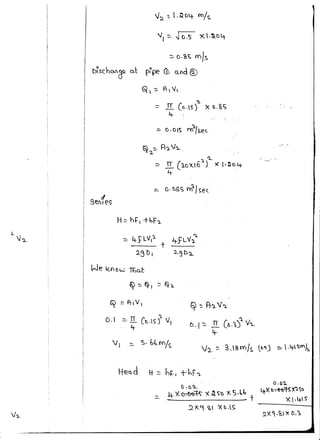 V₂ = 1.204 m/s
V₁ = √0.5 × 1.204
= 0.85 m/s
Discharge at pipe ① and ②
Q₁ = A₁V₁
= π/4 (0.15)² × 0.85
= 0.015 m³/sec
Q₂ = A₂V₂
= π/4 (30×10⁻²)² × 1.204
= 0.085 m³/sec
Series
H = hf₁ + hf₂
V₂
= 4fLV₁²/2gD₁ + 4fLV₂²/2gD₂
We know That
Q = Q₁ = Q₂
Q = A₁V₁ Q = A₂V₂
0.1 = π/4 (0.15)² V₁ 0.1 = π/4 (0.2)² V₂
V₁ = 5.66 m/s
V₂ = 3.18 m/s (or) = 1.415 m/s
Head H = hf₁ + hf₂
0.02 0.02
= 4 × 0.0075 × 250 × 5.66 / 2×9.81 × 0.15 + 4×0.0075×250 × 1.415 / 2×9.81×0.3
V₂